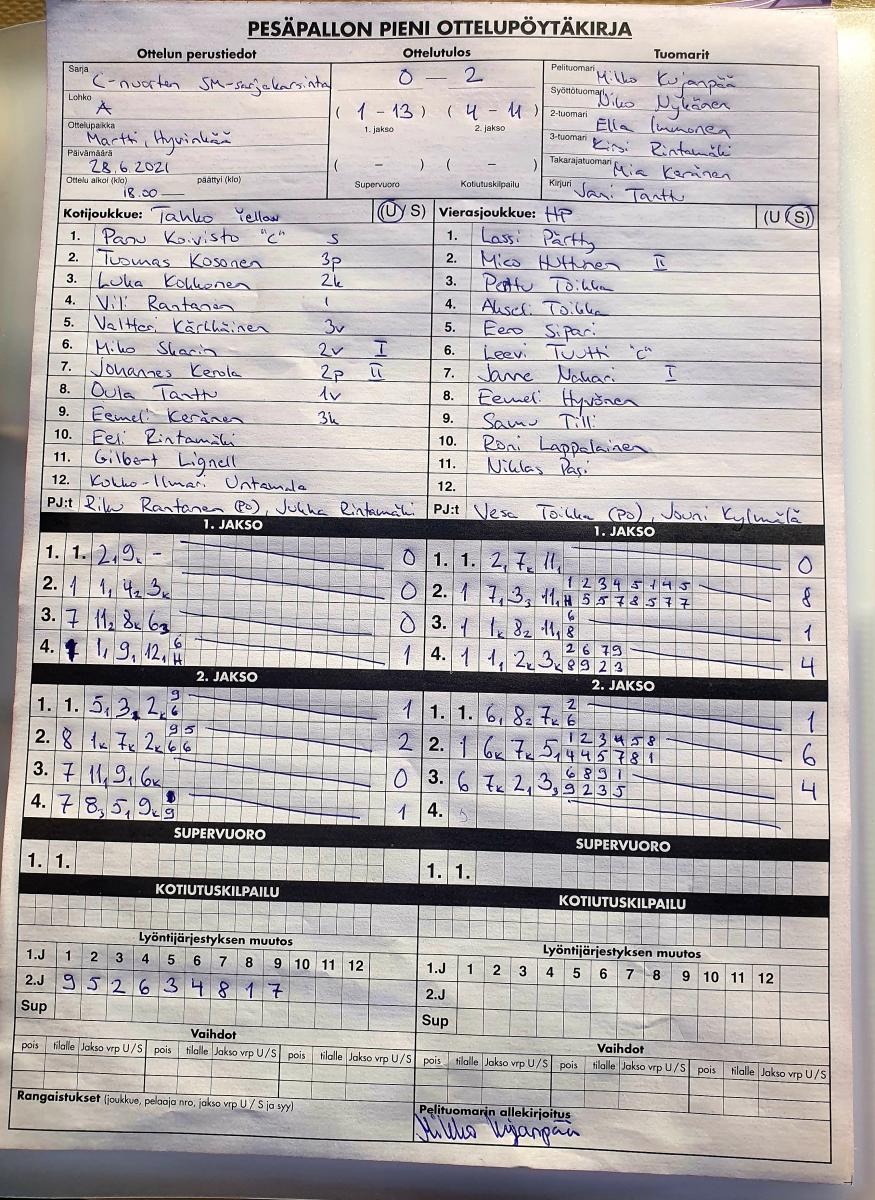 PESÄPALLON PIENI OTTELUPÖYTÄKIRJA
Ottelun perustiedot
Sarja C-nuorten SM-sarjakarsinta
Lohko A
Ottelupaikka Martti, Hyvinkää
Päivämäärä 28.6.2021
Ottelu alkoi (klo) päättyi (klo)
18.00 —
Ottelutulos
0 — 2
( 1 - 13 ) ( 4 - 11 )
1. jakso 2. jakso
( - ) ( - )
Supervuoro Kotiutuskilpailu
Tuomarit
Pelituomari Mikko Kujanpää
Syöttötuomari Niko Nykänen
2-tuomari Ella Immonen
3-tuomari Kirsi Rintamäki
Takarajatuomari Mia Keränen
Kirjuri Jani Tanttu
Kotijoukkue: Tahko Yellow (U/S)
1. Panu Koivisto "C" s
2. Tuomas Kosonen 3p
3. Luka Kokkonen 2k
4. Vili Rantanen 1
5. Valtteri Kärkkäinen 3v
6. Miko Skarin 2v I
7. Johannes Kerola 2p II
8. Oula Tanttu 1v
9. Eemeli Keränen 3k
10. Eeli Rintamäki
11. Gilbert Lignell
12. Kokko-Ilmari Untamala
PJ:t Riku Rantanen (PO), Jukka Rintamäki
Vierasjoukkue: HP (U/S)
1. Lassi Pärtty
2. Mico Huttunen II
3. Pattu Toikka
4. Akseli Toikka
5. Eero Sipari
6. Leevi Tuutti "C"
7. Janne Nakari I
8. Eemeli Hyvönen
9. Samu Tilli
10. Roni Lappalainen
11. Niklas Pasi
12.
PJ:t Vesa Toikka (PO), Jouni Kylmälä
1. JAKSO
1. 1. 2, 9k - 0
2. 1 1, 42 3k 0
3. 7 112 8k 63 0
6
4. 1 1, 9, 12, H 1
1. JAKSO
1. 1. 2, 7k 11, 0
1 2 3 4 5 1 4 5
2. 1 7, 33 11, H 5 5 7 8 5 7 7 8
6
3. 1 1k 82 11, 8 1
2 6 7 9
4. 1 1, 2k 3k 8 9 2 3 4
2. JAKSO
9
1. 1. 5, 3, 2k 6 1
9 5
2. 8 1k 7k 2k 6 6 2
3. 7 11, 9, 6k 0
4. 7 83 5, 9k 9 1
2. JAKSO
2
1. 1. 6, 82 7k 6 1
1 2 3 4 5 8
2. 1 6k 7k 5, 4 4 5 7 8 1 6
6 8 9 1
3. 6 7k 2, 33 9 2 3 5 4
4.
SUPERVUORO
1. 1.
SUPERVUORO
1. 1.
KOTIUTUSKILPAILU
KOTIUTUSKILPAILU
Lyöntijärjestyksen muutos
1.J 1 2 3 4 5 6 7 8 9 10 11 12
2.J 9 5 2 6 3 4 8 1 7
Sup
Lyöntijärjestyksen muutos
1.J 1 2 3 4 5 6 7 8 9 10 11 12
2.J
Sup
Vaihdot
pois tilalle Jakso vrp U/S pois tilalle Jakso vrp U/S pois tilalle Jakso vrp U/S
Vaihdot
pois tilalle Jakso vrp U/S pois tilalle Jakso vrp U/S pois tilalle Jakso vrp U/S
Rangaistukset (joukkue, pelaaja nro, jakso vrp U / S ja syy)
Pelituomarin allekirjoitus
Mikko Kujanpää